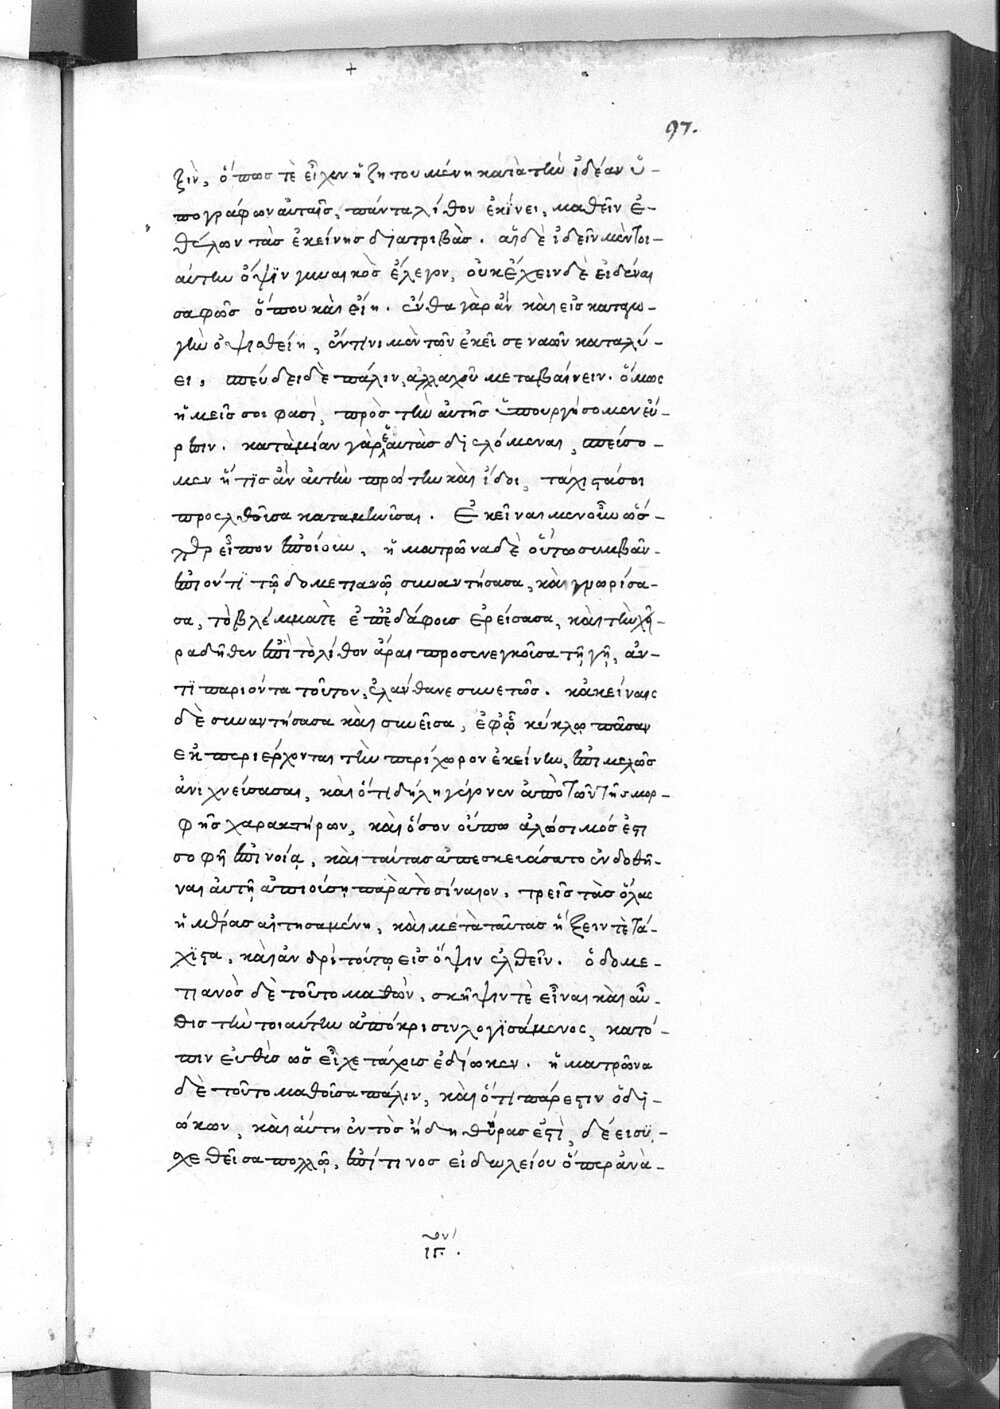 97.
ξιν, ὅπως τὲ εἶχεν ἡ ζητουμένη κατὰ τὴν ἰδέαν ὑ-
πογράφων αὐταῖς, πάντα λίθον ἐκίνει, μαθεῖν ἐ-
θέλων τὰς ἐκείνης διατριβὰς. αἱ δὲ ἰδεῖν μὲν τοι-
αύτην ὄψιν γυναικὸς ἔλεγον, οὐκ ἔχειν δὲ εἰδέναι
σαφῶς ὅπου καὶ εἴη. ἔνθα γὰρ ἂν καὶ εἰς καταγω-
γὴν ὀψισθείη, ἔν τινι μὲν τῶν ἐκεῖσε ναῶν καταλύ-
ει, σπεύδει δὲ πάλιν ἀλλαχοῦ μεταβαίνειν. ὅμως
ἡμεῖς σοι φασὶ, πρὸς τὴν αὐτῆς ὑπουργήσομεν εὕ-
ρεσιν. κατὰ μίαν γὰρ ἑαυτὰς διελόμεναι, σπείσο-
μεν ἥτις ἂν αὐτὴν πρώτην καὶ ἴδοι, τάχιστά σοι
προσελθοῦσα καταμηνῦσαι. Ἐκεῖναι μὲν οὖν ὥσ-
περ εἶπον ἐποίουν, ἡ ματρῶνα δὲ οὕτω συμβὰν
ἐπιόντι τῷ δομετιανῷ συναντήσασα, καὶ γνωρίσα-
σα, τὸ βλέμμα τὲ ἐπ' ἐδάφοις ἐρείσασα, καὶ τὴν χεῖ-
ρα δῆθεν ἐπὶ τὸ λίθον ἆραι προσενεγκοῦσα τῇ γῇ, ἀν-
τιπαριόντα τοῦτον, ἐλάνθανε συνετῶς. κἀκείναις
δὲ συναντήσασα καὶ συνεῖσα, ἐφ' ᾧ κύκλῳ πᾶσαν
ἐκπεριέρχονται τὴν περίχωρον ἐκείνην, ἐπιμελῶς
ἀνιχνεύσασαι, καὶ ὅτι δήλη γέγονεν ἀπὸ τῶν τῆς μορ-
φῆς χαρακτήρων, καὶ ὅσον οὔπω ἁλώσιμός ἐστι
σοφῇ ἐπινοίᾳ, καὶ ταύτας ἀπεσκευάσατο ἐνδοθῆ-
ναι αὐτῇ ἀπιούσῃ παρὰ τὸ σίναιον, τρεῖς τὰς ὅλας
ἡμέρας αἰτησαμένη, καὶ μετὰ ταύτας ἥξειν τὲ τά-
χιστα, καὶ ἀνδρὶ τούτῳ εἰς ὄψιν ἐλθεῖν. ὁ δομε-
τιανὸς δὲ τοῦτο μαθὼν, σκῆψιν τὲ εἶναι καὶ αὖ-
θις τὴν τοιαύτην ἀπόκρισιν λογισάμενος, κατό-
πιν εὐθὺς ὡς εἶχε τάχους ἐδίωκεν. ἡ ματρῶνα
δὲ τοῦτο μαθοῦσα πάλιν, καὶ ὅτι πάρεστιν ὁ δι-
ώκων, καὶ αὕτη ἐντὸς ἤδη θύρας ἐστὶ, δέει συ-
χεθεῖσα πολλῷ, ἐπί τινος εἰδωλείου ὅπερ ἀνὰ-